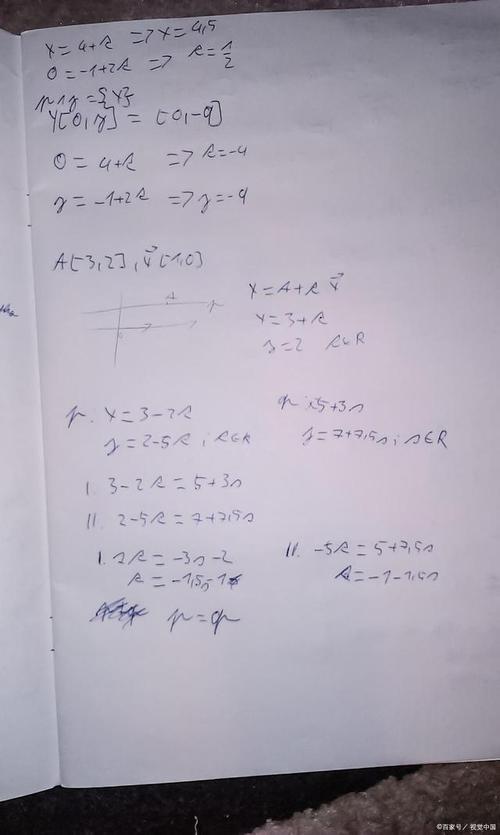 x = 4+k => x = 4,5
0 = -1+2k => k = 1/2
p ∩ y = {Y}
Y[0,y] = [0,-9]
0 = 4+k => k = -4
y = -1+2k => y = -9
A[3,2], v⃗ (1,0)
A
p
0
X = A + k v⃗
x = 3+k
y = 2 k∈R
p: x = 3-2k
y = 2-5k; k∈R
q: x5+3s
y = 7+7,5s; s∈R
I. 3-2k = 5+3s
II. 2-5k = 7+7,5s
I. 2k = -3s-2
k = -1,5s-1
II. -5k = 5+7,5s
k = -1-1,5s
p = q
©百家号/视觉中国